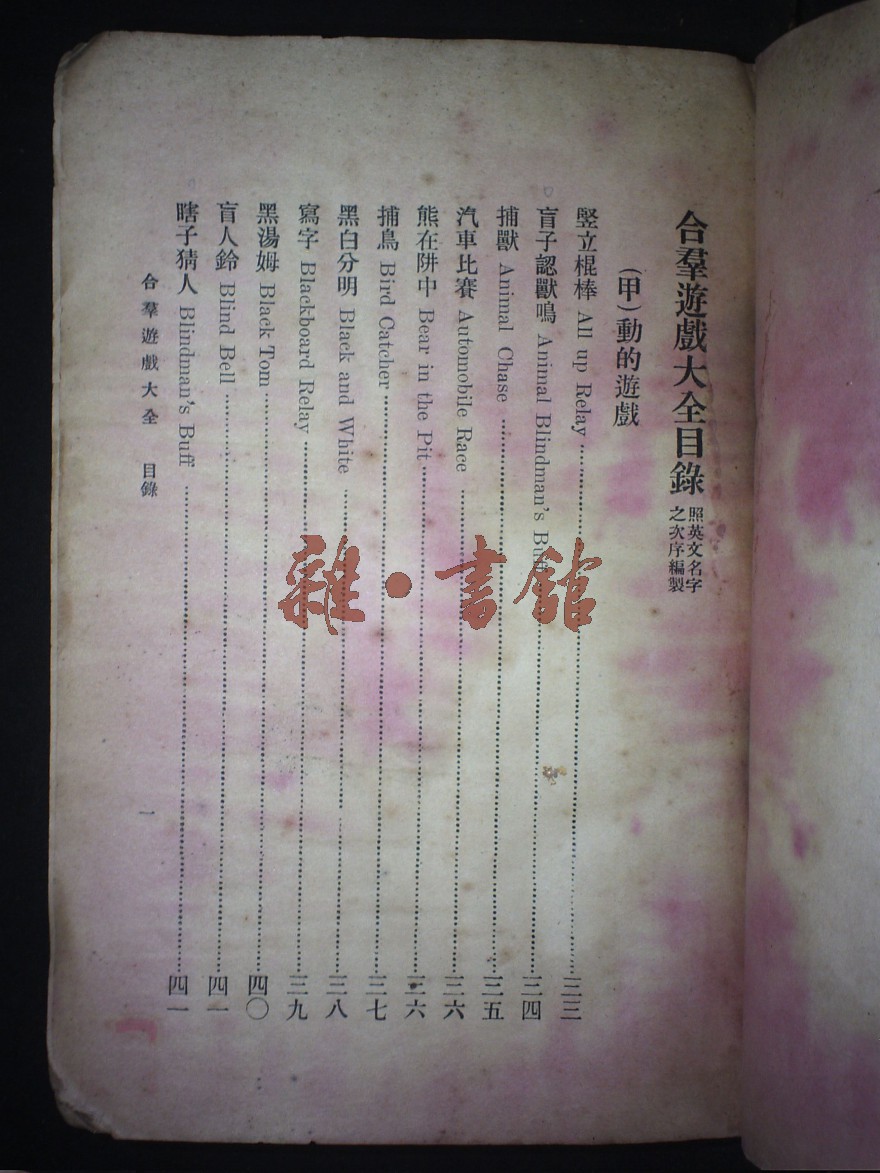 合羣遊戲大全目錄 照英文名字之次序編製
(甲)動的遊戲
竪立棍棒 All up Relay 三三
盲子認獸鳴 Animal Blindman's Buff 三四
捕獸 Animal Chase 三五
汽車比賽 Automobile Race 三六
熊在阱中 Bear in the Pit 三六
捕鳥 Bird Catcher 三七
黑白分明 Black and White 三八
寫字 Blackboard Relay 三九
黑湯姆 Black Tom 四〇
盲人鈴 Blind Bell 四一
瞎子猜人 Blindman's Buff 四一
合羣遊戲大全 目錄 一
雜·書館